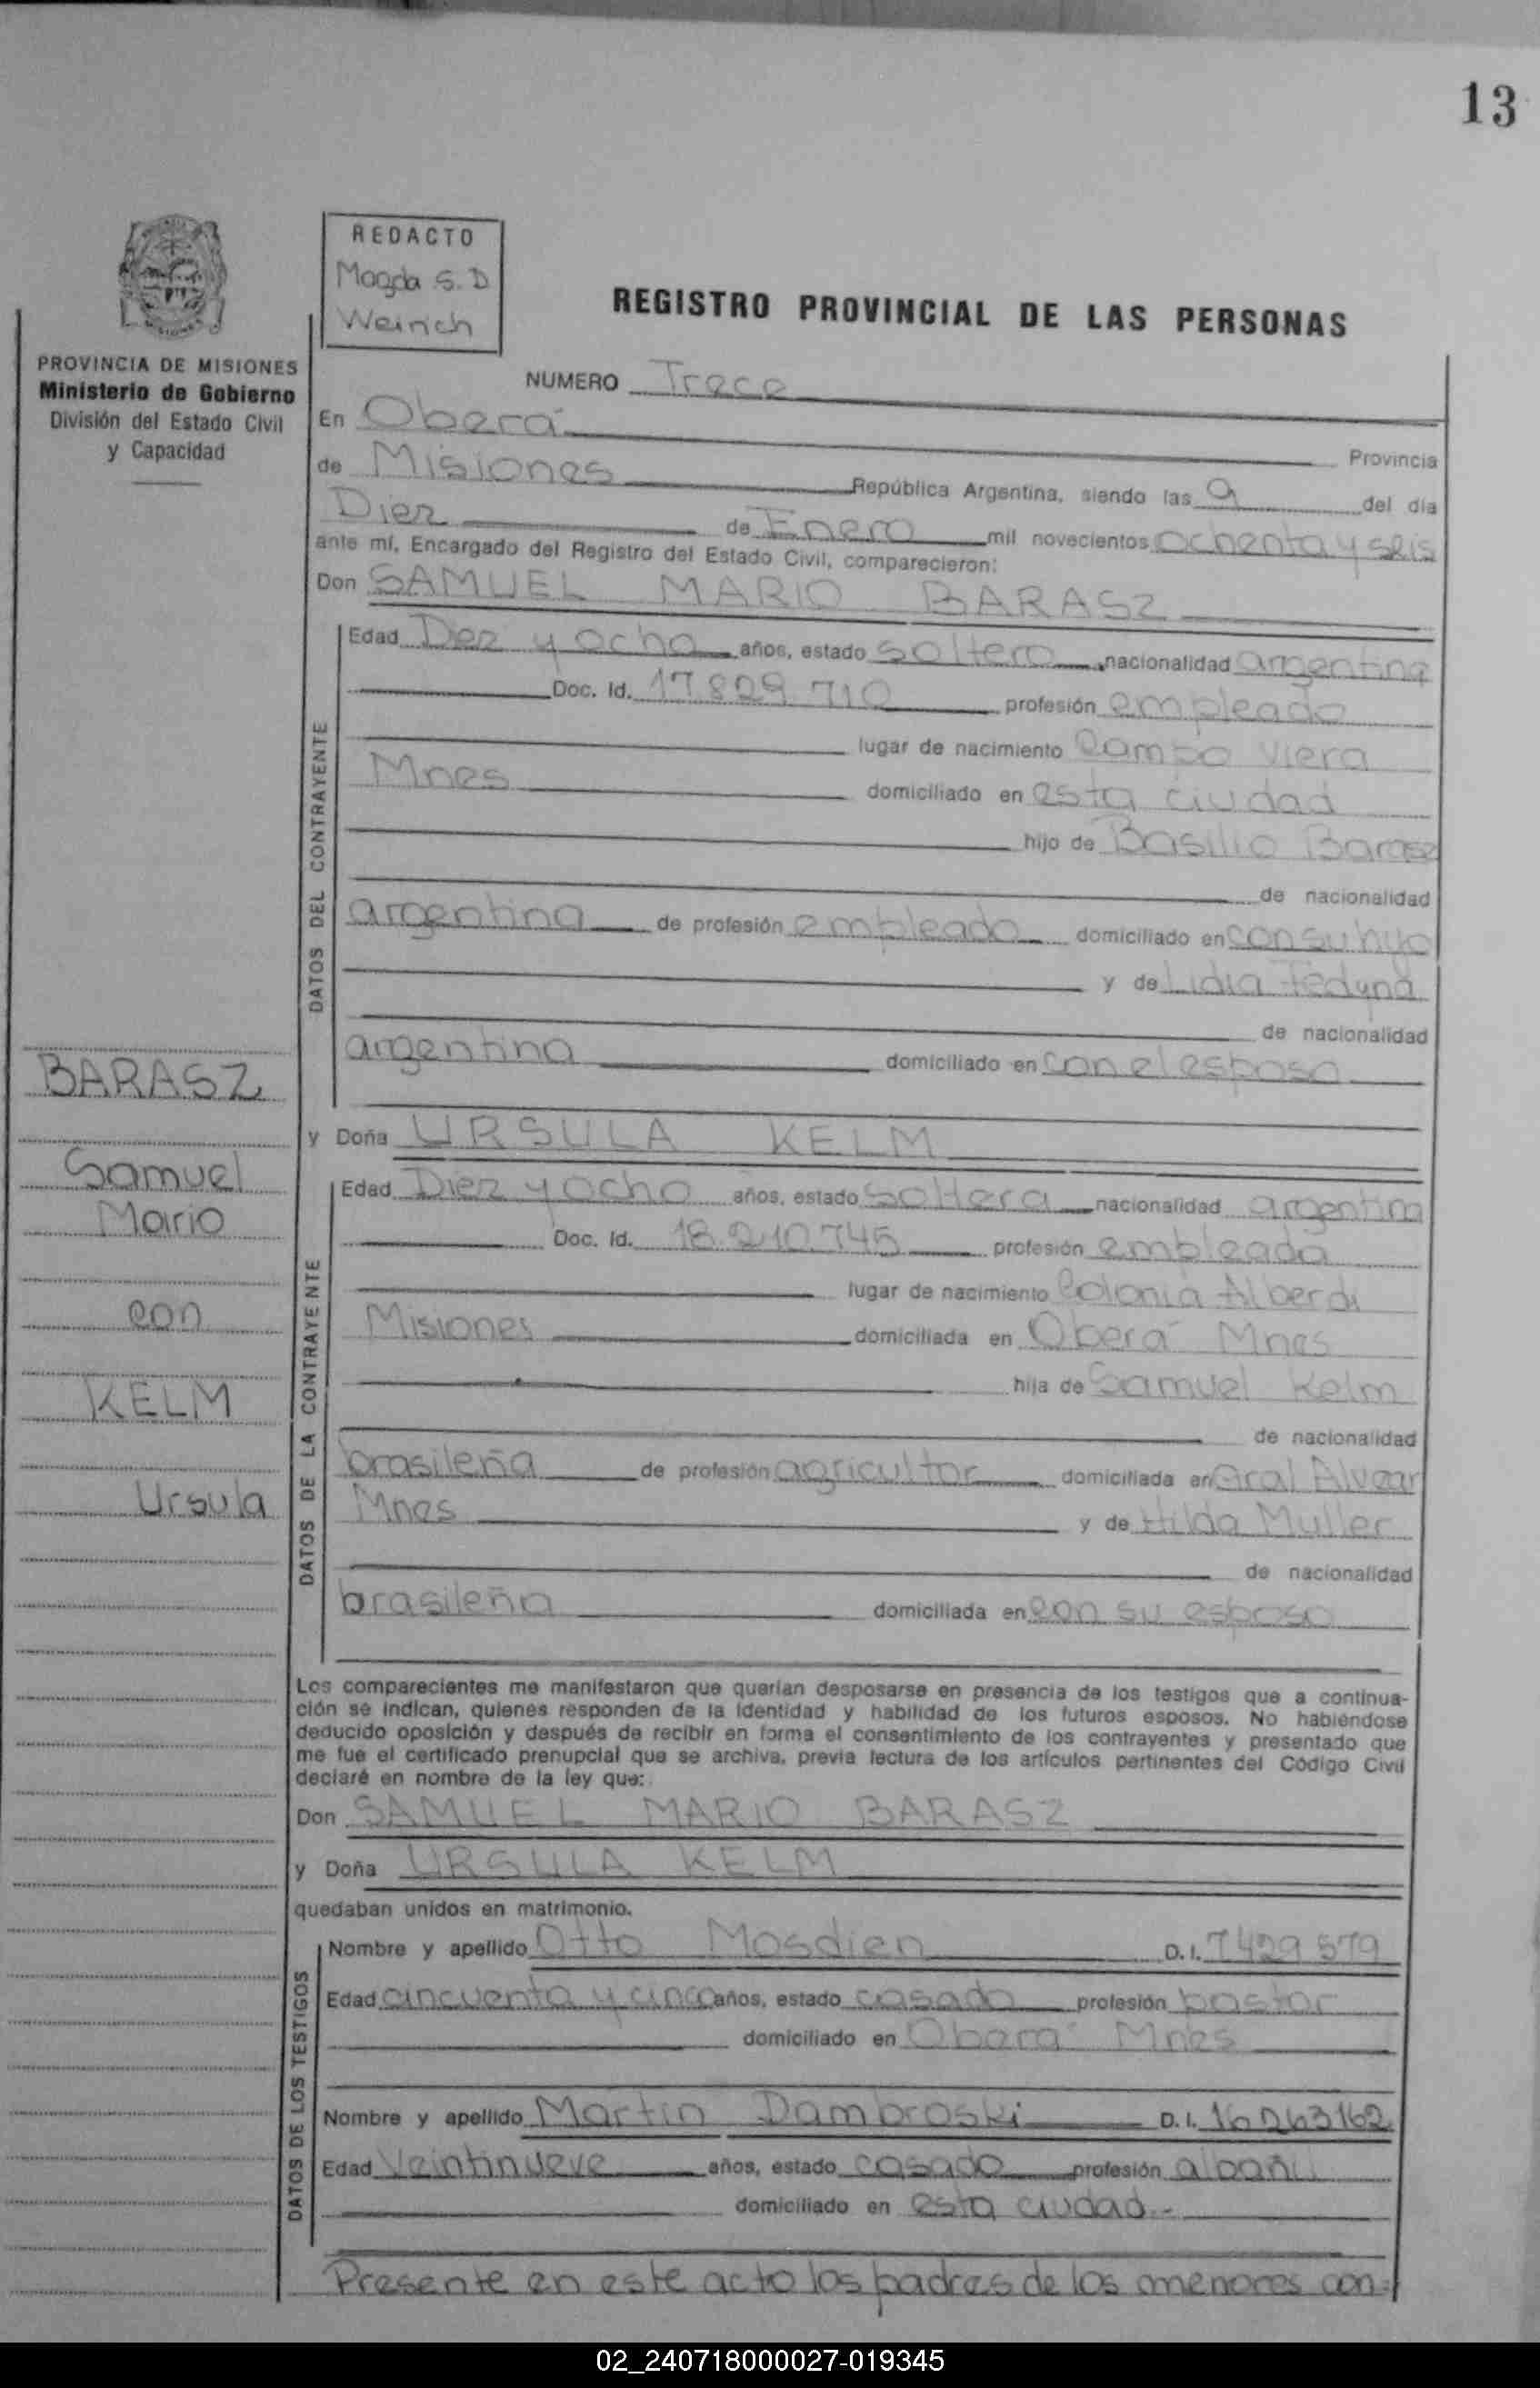 13
REDACTO
Magda S. D
Weirich
REGISTRO PROVINCIAL DE LAS PERSONAS
PROVINCIA DE MISIONES
Ministerio de Gobierno
División del Estado Civil
y Capacidad
NUMERO Trece
En Oberá Provincia
de Misiones República Argentina, siendo las 9 del día
Diez de Enero mil novecientos ochenta y seis
ante mí, Encargado del Registro del Estado Civil, comparecieron:
Don SAMUEL MARIO BARASZ
DATOS DEL CONTRAYENTE
Edad Diez y ocho años, estado soltero nacionalidad argentina
Doc. Id. 17.829.710 profesión empleado
lugar de nacimiento Campo Viera
Mnes domiciliado en esta ciudad
hijo de Basilio Barasz
de nacionalidad
argentina de profesión empleado domiciliado en con su hijo
y de Lidia Fedyna
de nacionalidad
argentina domiciliado en con el esposo
y Doña URSULA KELM
DATOS DE LA CONTRAYENTE
Edad Diez y ocho años, estado soltera nacionalidad argentina
Doc. Id. 18.210.745 profesión empleada
lugar de nacimiento Colonia Alberdi
Misiones domiciliada en Oberá Mnes
hija de Samuel Kelm
de nacionalidad
brasileña de profesión agricultor domiciliada en Gral Alvear
Mnes y de Hilda Muller
de nacionalidad
brasileña domiciliada en con su esposo
BARASZ
Samuel
Mario
con
KELM
Ursula
Los comparecientes me manifestaron que querían desposarse en presencia de los testigos que a continua-
ción se indican, quienes responden de la identidad y habilidad de los futuros esposos. No habiéndose
deducido oposición y después de recibir en forma el consentimiento de los contrayentes y presentado que
me fue el certificado prenupcial que se archiva, previa lectura de los artículos pertinentes del Código Civil
declaré en nombre de la ley que:
Don SAMUEL MARIO BARASZ
y Doña URSULA KELM
quedaban unidos en matrimonio.
DATOS DE LOS TESTIGOS
Nombre y apellido Otto Mosdien D.I. 7429579
Edad cincuenta y cinco años, estado casado profesión pastor
domiciliado en Oberá Mnes
Nombre y apellido Martin Dambroski D.I. 16263162
Edad Veintinueve años, estado casado profesión albañil
domiciliado en esta ciudad.-
Presente en este acto los padres de los menores con-
02_240718000027-019345